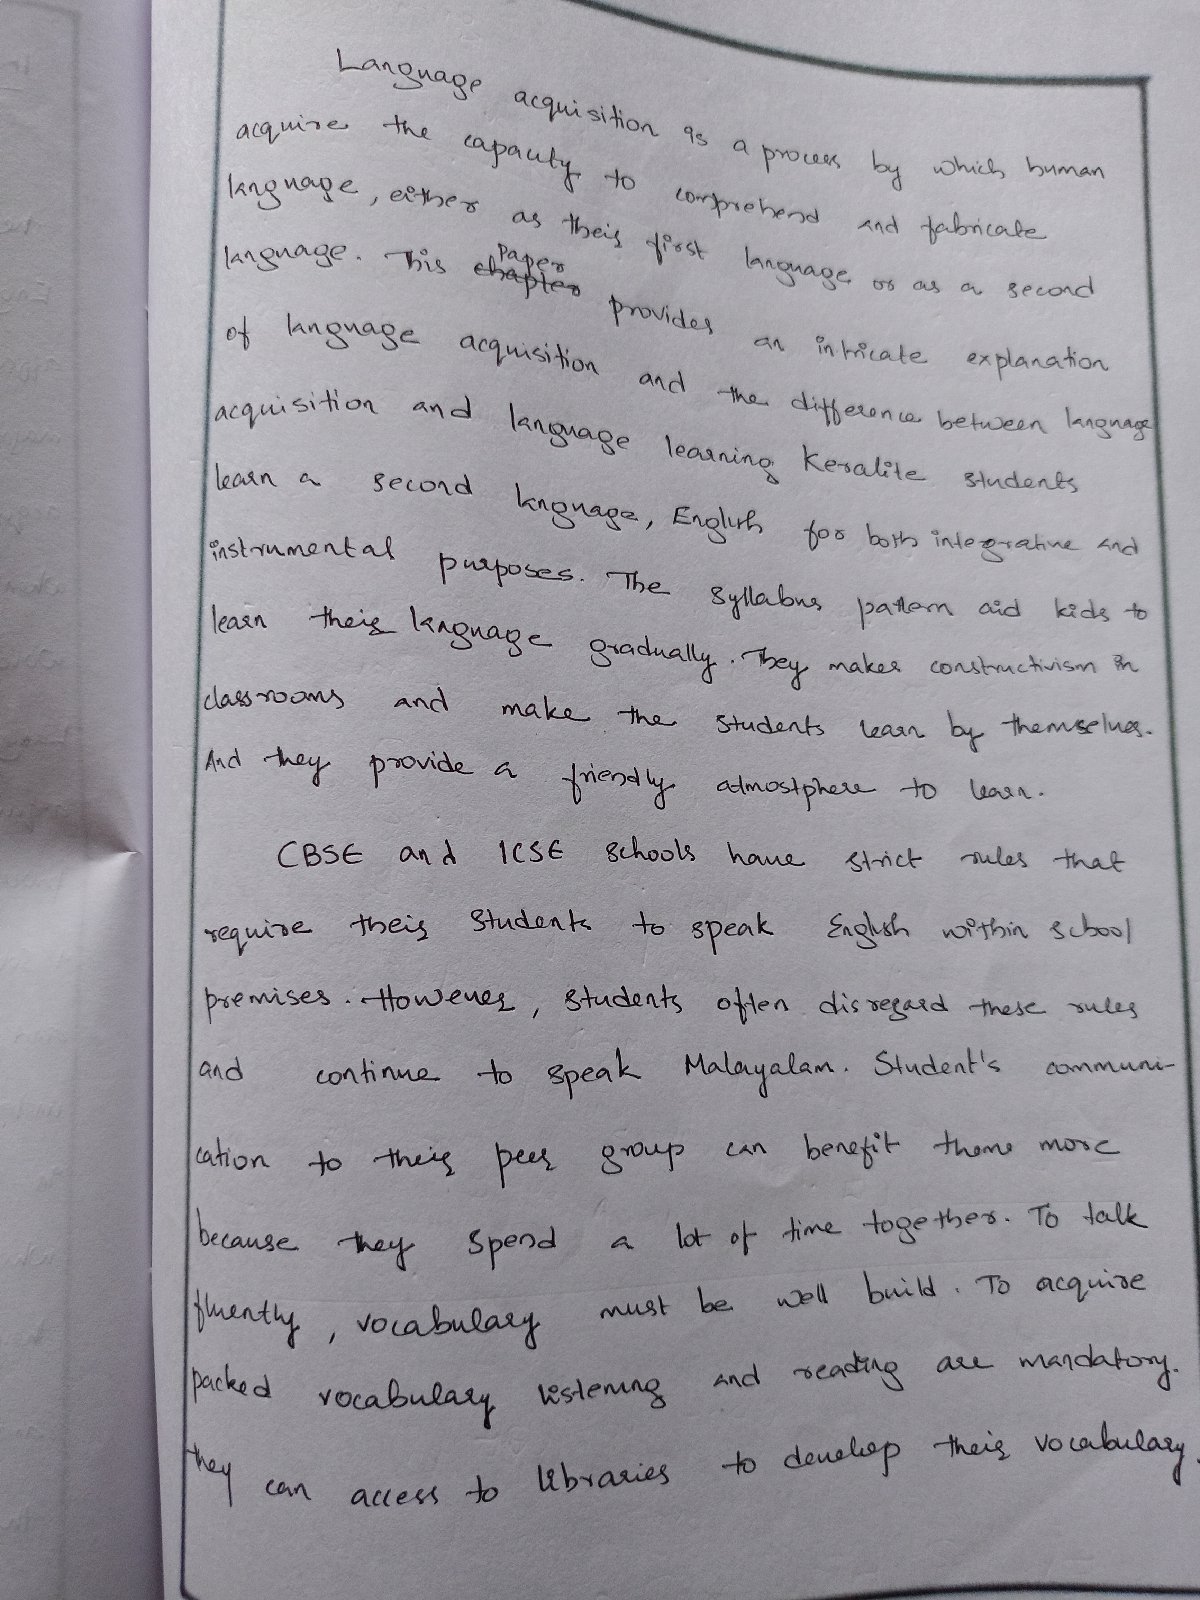 Language acquisition is a process by which human
acquire the capacity to comprehend and fabricate
language, either as their first language or as a second
language. This chapter paper provides an intricate explanation
of language acquisition and the difference between language
acquisition and language learning Keralite students
learn a second language, English for both integrative and
instrumental purposes. The syllabus pattern aid kids to
learn their language gradually. They makes constructivism in
classrooms and make the students learn by themselves.
And they provide a friendly atmostphere to learn.
CBSE and ICSE schools have strict rules that
require their students to speak English within school
premises. However, students often disregard these rules
and continue to speak Malayalam. Student's communi-
cation to their peer group can benefit them more
because they spend a lot of time together. To talk
fluently, vocabulary must be well build. To acquire
packed vocabulary listening and reading are mandatory.
They can access to libraries to develop their vocabulary.